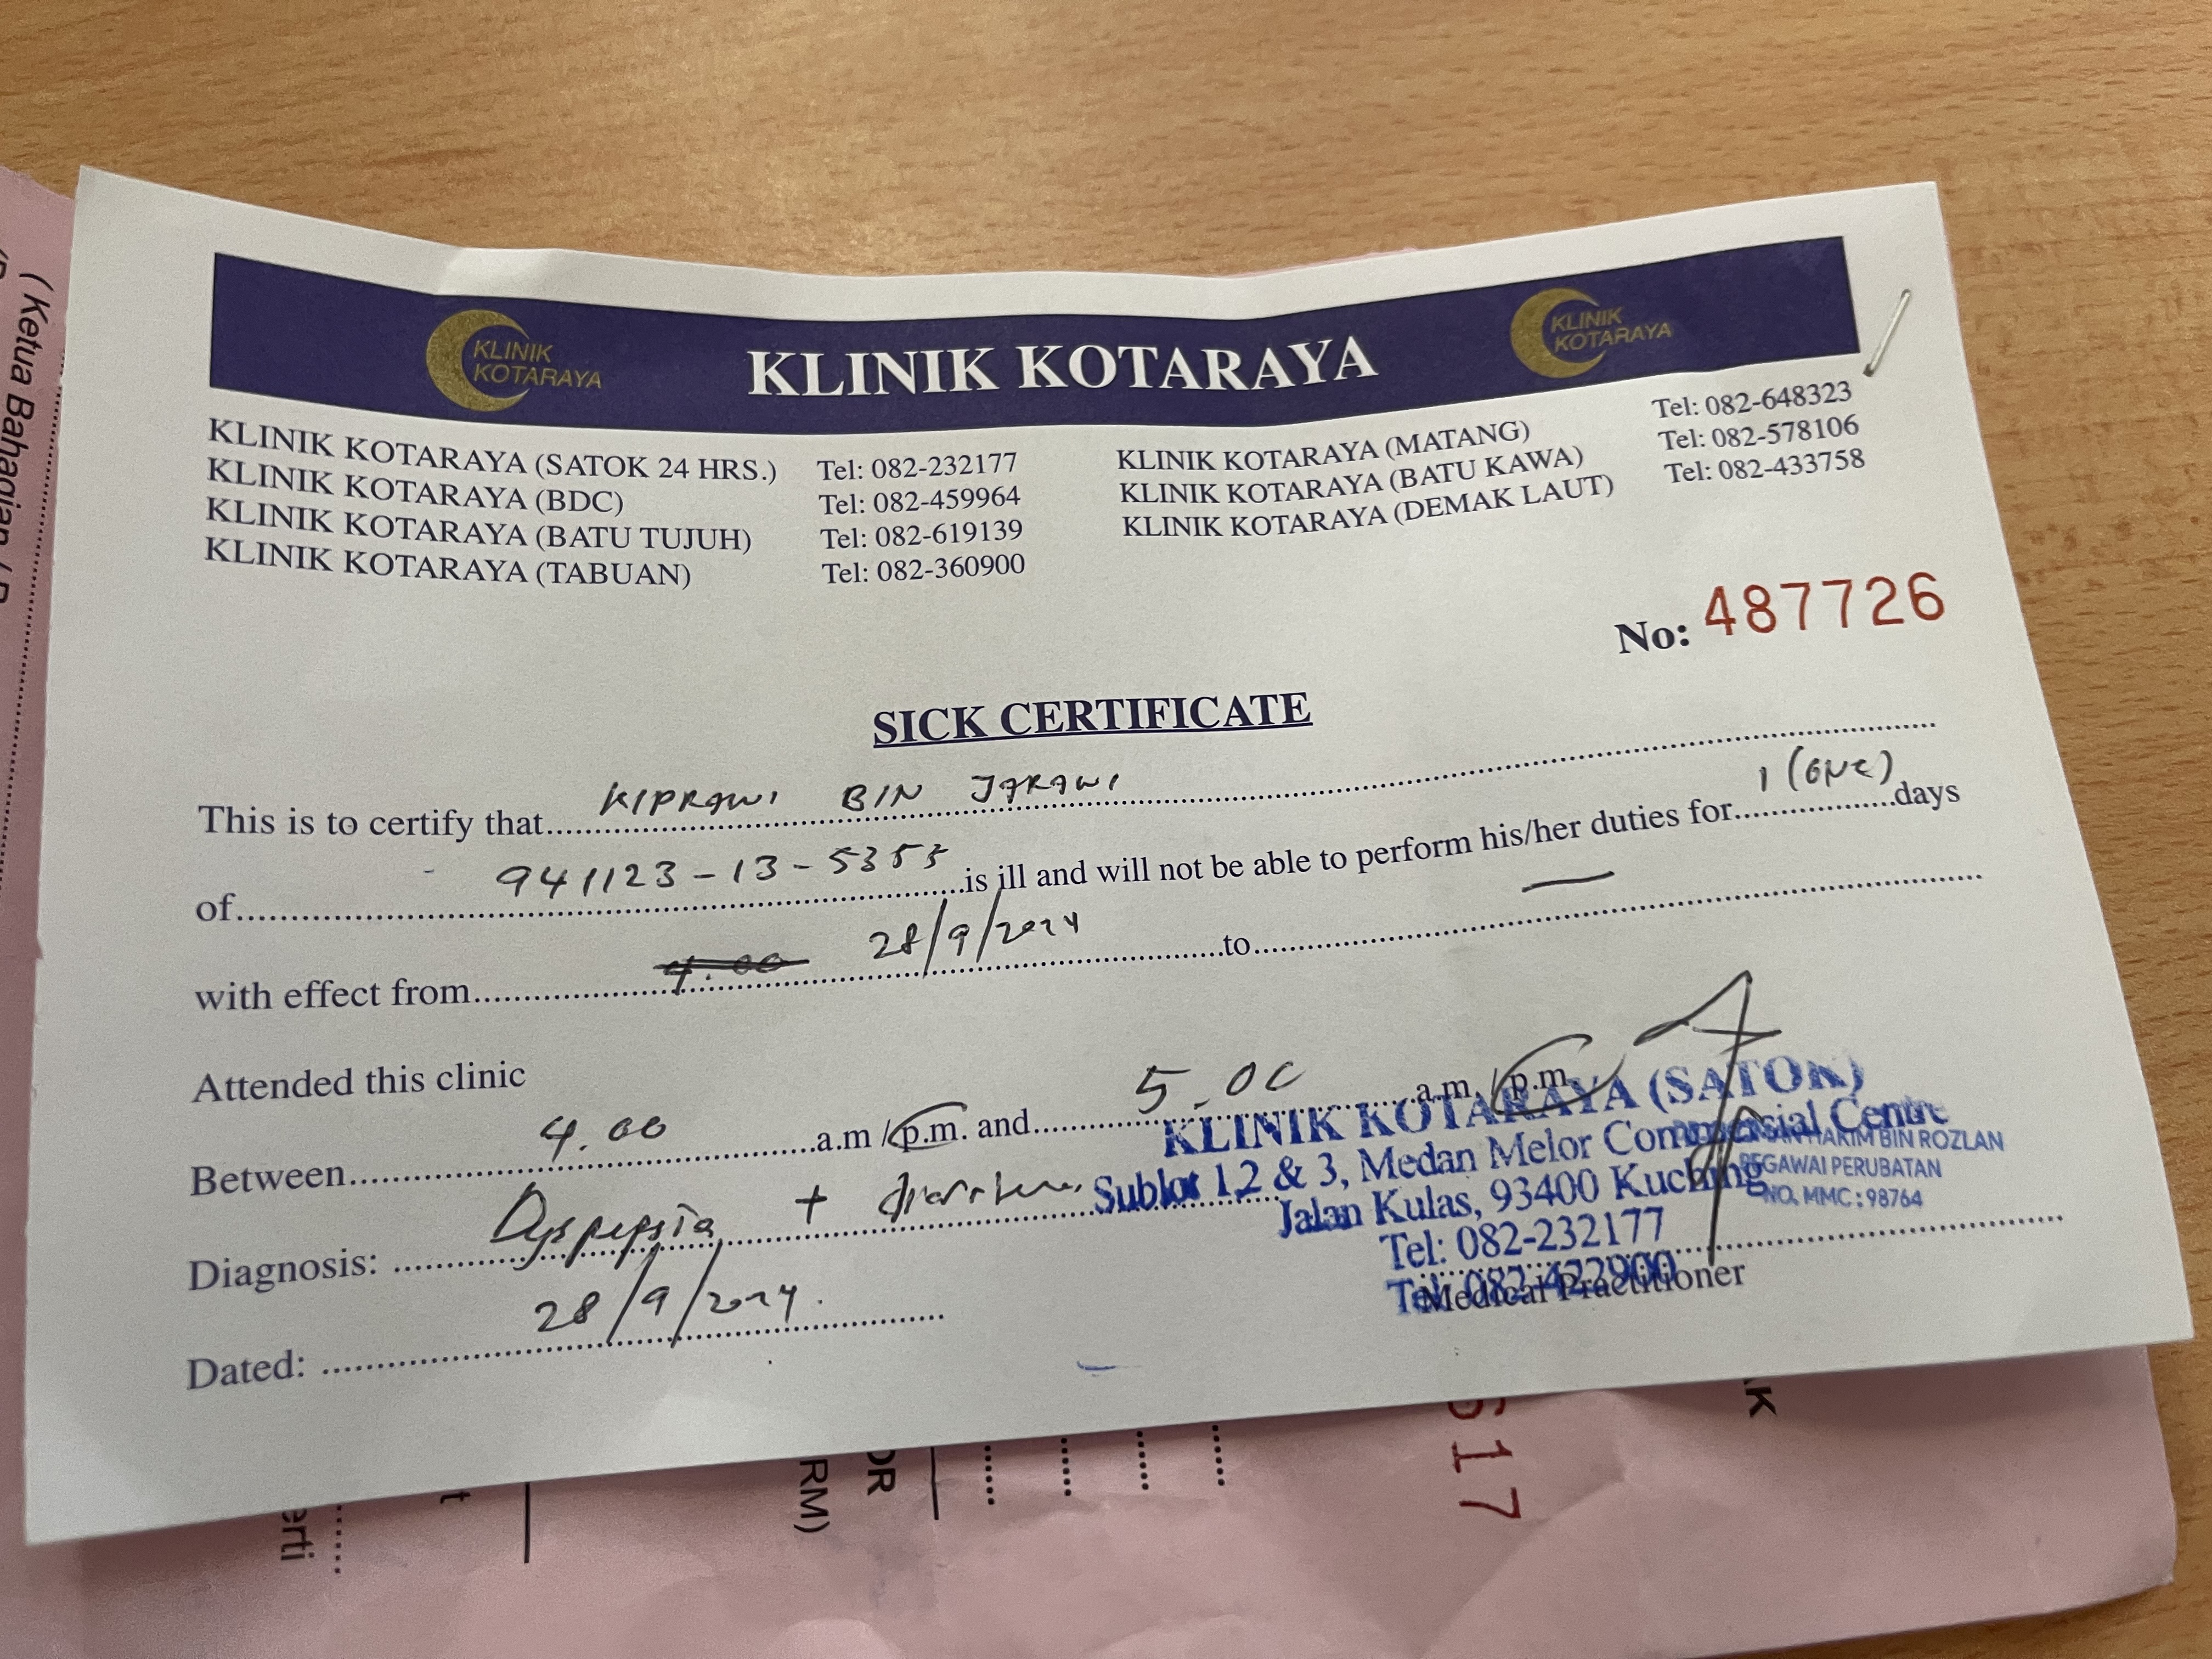 KLINIK KOTARAYA
KLINIK KOTARAYA
KLINIK KOTARAYA
KLINIK KOTARAYA (SATOK 24 HRS.) Tel: 082-232177
KLINIK KOTARAYA (BDC) Tel: 082-459964
KLINIK KOTARAYA (BATU TUJUH) Tel: 082-619139
KLINIK KOTARAYA (TABUAN) Tel: 082-360900
KLINIK KOTARAYA (MATANG) Tel: 082-648323
KLINIK KOTARAYA (BATU KAWA) Tel: 082-578106
KLINIK KOTARAYA (DEMAK LAUT) Tel: 082-433758
No: 487726
SICK CERTIFICATE
This is to certify that BIN
of 941123-13- is ill and will not be able to perform his/her duties for 1 (one) days
with effect from 28/9/2024 to —
Attended this clinic
Between 4.00 a.m / p.m. and 5.00 a.m / p.m.
Diagnosis: Dyspepsia +
Dated: 28/9/2024
KLINIK KOTARAYA (SATOK)
Sublot 1,2 & 3, Medan Melor Commercial Centre
Jalan Kulas, 93400 Kuching
Tel: 082-232177
Tel: 082-422900
Medical Practitioner
HAKIM BIN ROZLAN
PEGAWAI PERUBATAN
NO. MMC : 98764
( Ketua Bahagian /
RM)
617